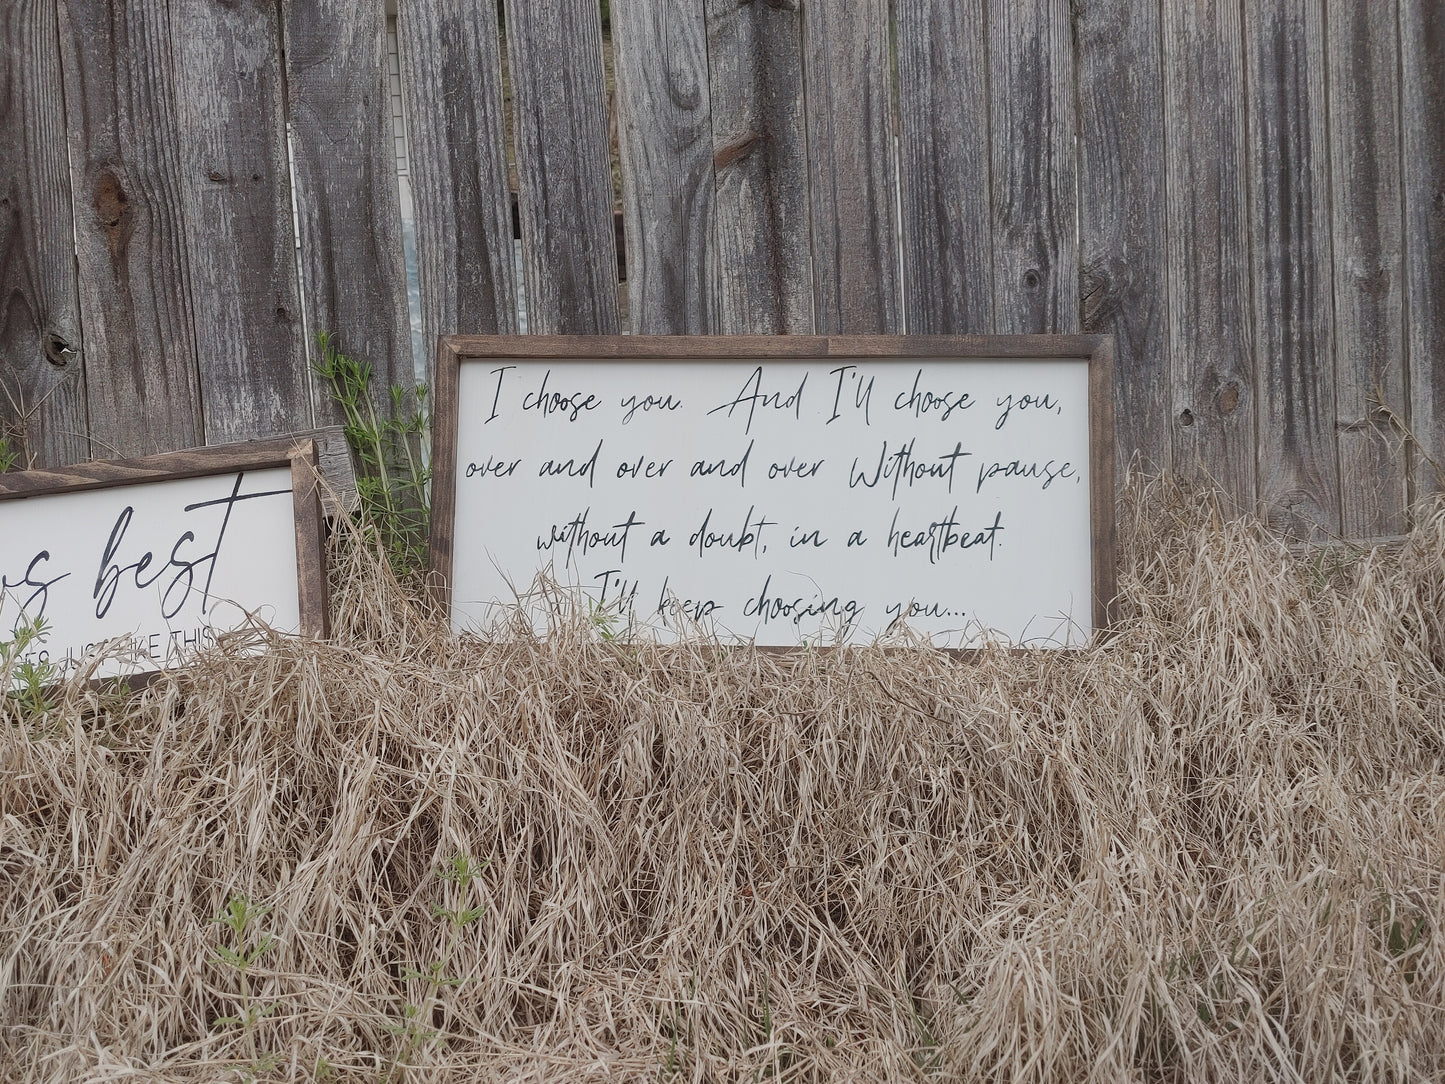 best
JUST LIKE THIS
I choose you. And I'll choose you,
over and over and over Without pause,
without a doubt, in a heartbeat.
I'll keep choosing you...